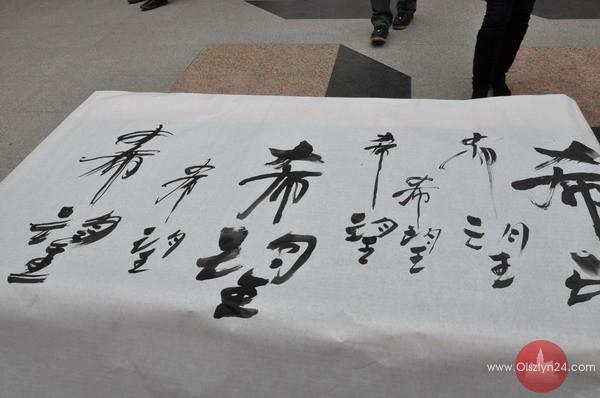 希望
希望
希望
希望
希望
希望
希
www.Olsztyn24.com